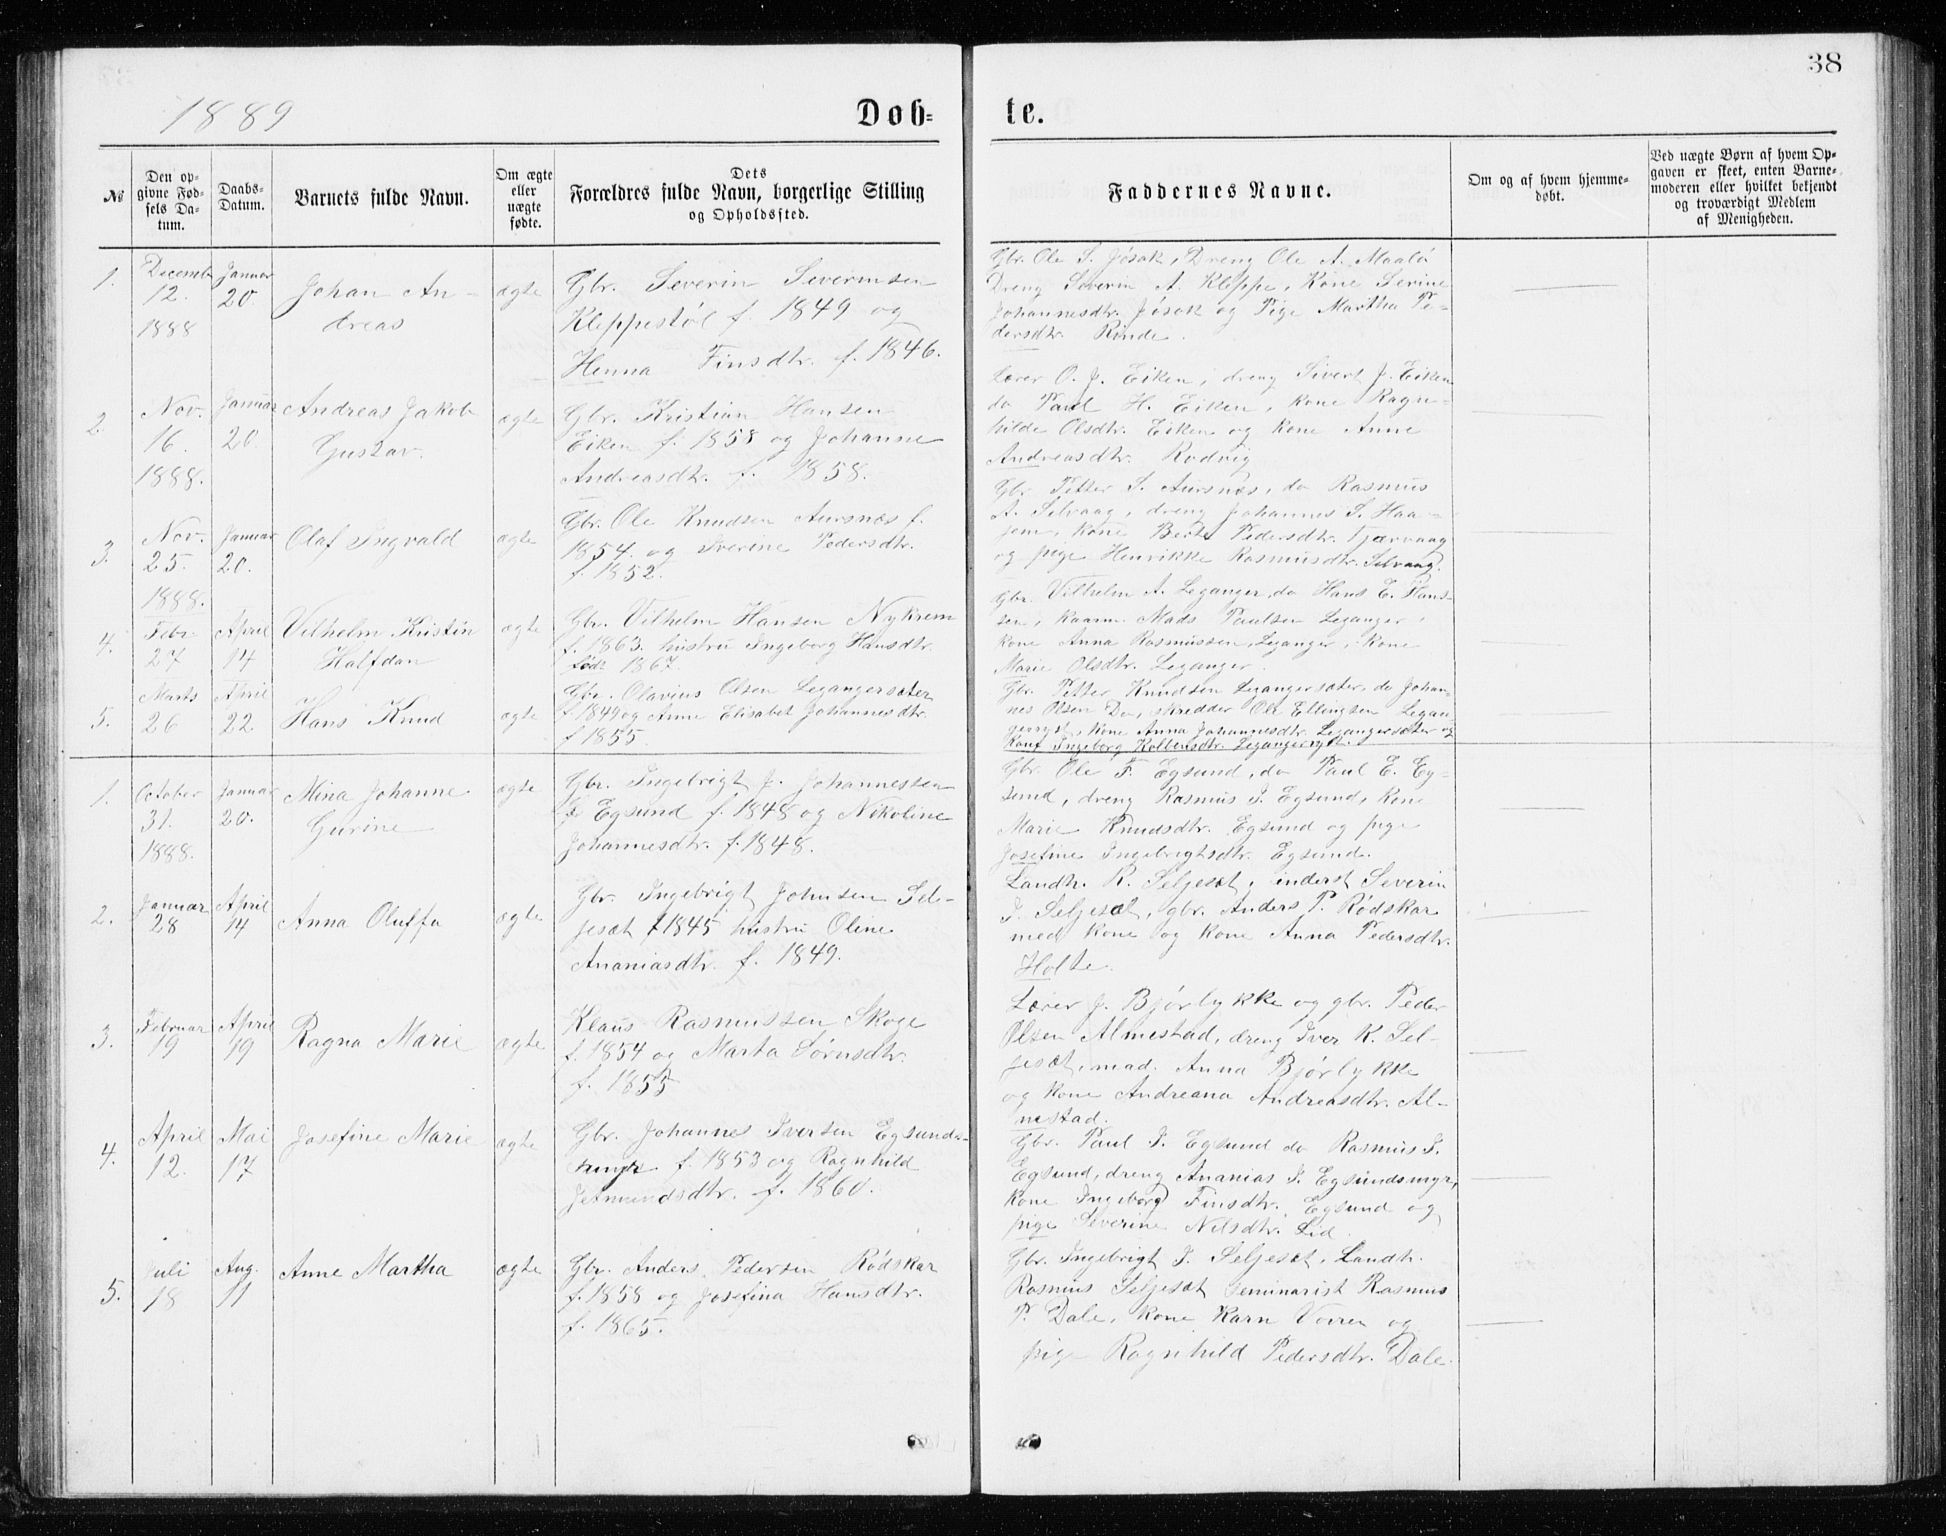 38
1889
Døb-
te.
№
Den op-
givne Fød-
sels Da-
tum.
Daabs-
Datum.
Barnets fulde Navn.
Om ægte
eller
uægte
fødte.
Dets
Forældres fulde Navn, borgerlige Stilling
og Opholdssted.
Faddernes Navne.
Om og af hvem hjemme-
døbt.
Ved uægte Børn af hvem Op-
gaven er skeet, enten Barne-
moderen eller hvilket bekjendt
og troværdigt Medlem
af Menigheden.
1.
Decembr
12.
1888
Januar
20
Johan An-
dreas
ægte
Gbr. Severin Severinsen
Kleppestøl f. 1849 og
Henna Finsdtr. f. 1846.
Gbr. Ole S. Jøsok, Dreng Ole A. Maalø
Dreng Severin A. Kleppe, Kone Serine
Johannesdtr. Jøsok og Pige Martha Pe-
dersdtr. Rønde.
2.
Nov.
16.
1888.
Januar
20.
Andreas Jakob
Gustav.
ægte
Gbr. Kristian Hansen
Eiken f. 1858 og Johanne
Andreasdtr. f. 1858.
Lærer O. J. Eiken, dreng Sivert J. Eiken
do Paul H. Eiken, kone Ragn-
hilde Olsdtr. Eiken og kone Anne
Andreasdtr. Rødvig
3.
Nov.
25.
1888.
Januar
20.
Olaf Ingvald
ægte
Gbr. Ole Knudsen Aursnes f.
1854. og Iverine Pedersdtr.
f. 1852.
Gbr. Petter S. Aursnes, do Rasmus
A. Selvaag, dreng Johannes S. Haa-
jem, kone Berte Pedersdtr. Tjærvaag
og pige Henrikke Rasmusdtr. Selvaag.
4.
Febr.
27
April
14
Vilhelm Kristin
Halfdan
ægte
Gbr. Vilhelm Hansen Nykrem
f. 1863. hustru Ingeborg Hansdtr.
født 1867.
Gbr. Vilhelm A. Leganger, do Hans E. Hans-
sen, kaarm. Mads Paulsen Leganger,
kone Anna Rasmussen, Leganger, kone
Marie Olsdtr. Leganger.
5.
Marts
26
April
22
Hans Knud
ægte
Gbr. Olavius Olsen Legangersæter
f. 1849 og Anne Elisabet Johannesdtr.
f 1855.
Gbr. Petter Knudsen Legangersæter, do Johan-
nes Olsen Do, skredder Ole Ellingsen Legan-
gerryst, kone Anna Johannesdtr. Legangersæter og
kone Ingeborg Kolbensdtr. Legangerryst.
1.
October
31.
1888.
Januar
20.
Mina Johanne
Gurine
ægte
Gbr. Ingebrigt J. Johannessen
Egsund f. 1848 og Nikoline
Johannesdtr. f. 1848.
Gbr. Ole F. Egsund, do Paul E. Eg-
sund, dreng Rasmus I. Egsund, kone
Marie Knudsdtr. Egsund og pige
Josefine Ingebrigtsdtr. Egsund.
2.
Januar
28
April
14
Anna Oluffa
ægte
Gbr. Ingebrigt Johnsen Sel-
jesæt f 1845 hustru Oline
Ananiasdtr. f. 1849.
Landh. R. Seljesæt, inderst Severin
I. Seljesæt, gbr. Anders P. Rødskar
med kone og kone Anna Pedersdtr.
Holte.
3.
Februar
19
April
19
Ragna Marie
ægte
Klaus Rasmussen Skoge
f. 1854 og Marta Sørnsdtr.
f. 1855
Lærer J. Bjørlykke og gbr. Peder
Olsen Almestad, dreng Iver K. Sel-
jesæt, mad. Anna Bjørlykke
og kone Andreana Andreasdtr. Al-
mestad.
4.
April
12.
Mai
17
Josefine Marie
ægte
Gbr. Johannes Iversen Egsunds-
myr f. 1853 og Ragnhild
Jetmundsdtr. f. 1860.
Gbr. Paul I. Egsund do Rasmus I.
Egsund, dreng Ananias I. Egsundsmyr,
kone Ingeborg Finsdtr. Egsund og
pige Severine Nilsdtr. Lid.
5.
Juli
18
Aug.
11
Anne Martha
ægte
Gbr. Anders Pedersen Rødskar
f. 1858 og Josefina Hansdtr.
f. 1865.
Gbr. Ingebrigt I. Seljesæt, Landh.
Rasmus Seljesæt seminarist Rasmus
P. Dale, kone Karn Vorren og
pige Ragnhild Pedersdtr. Dale.